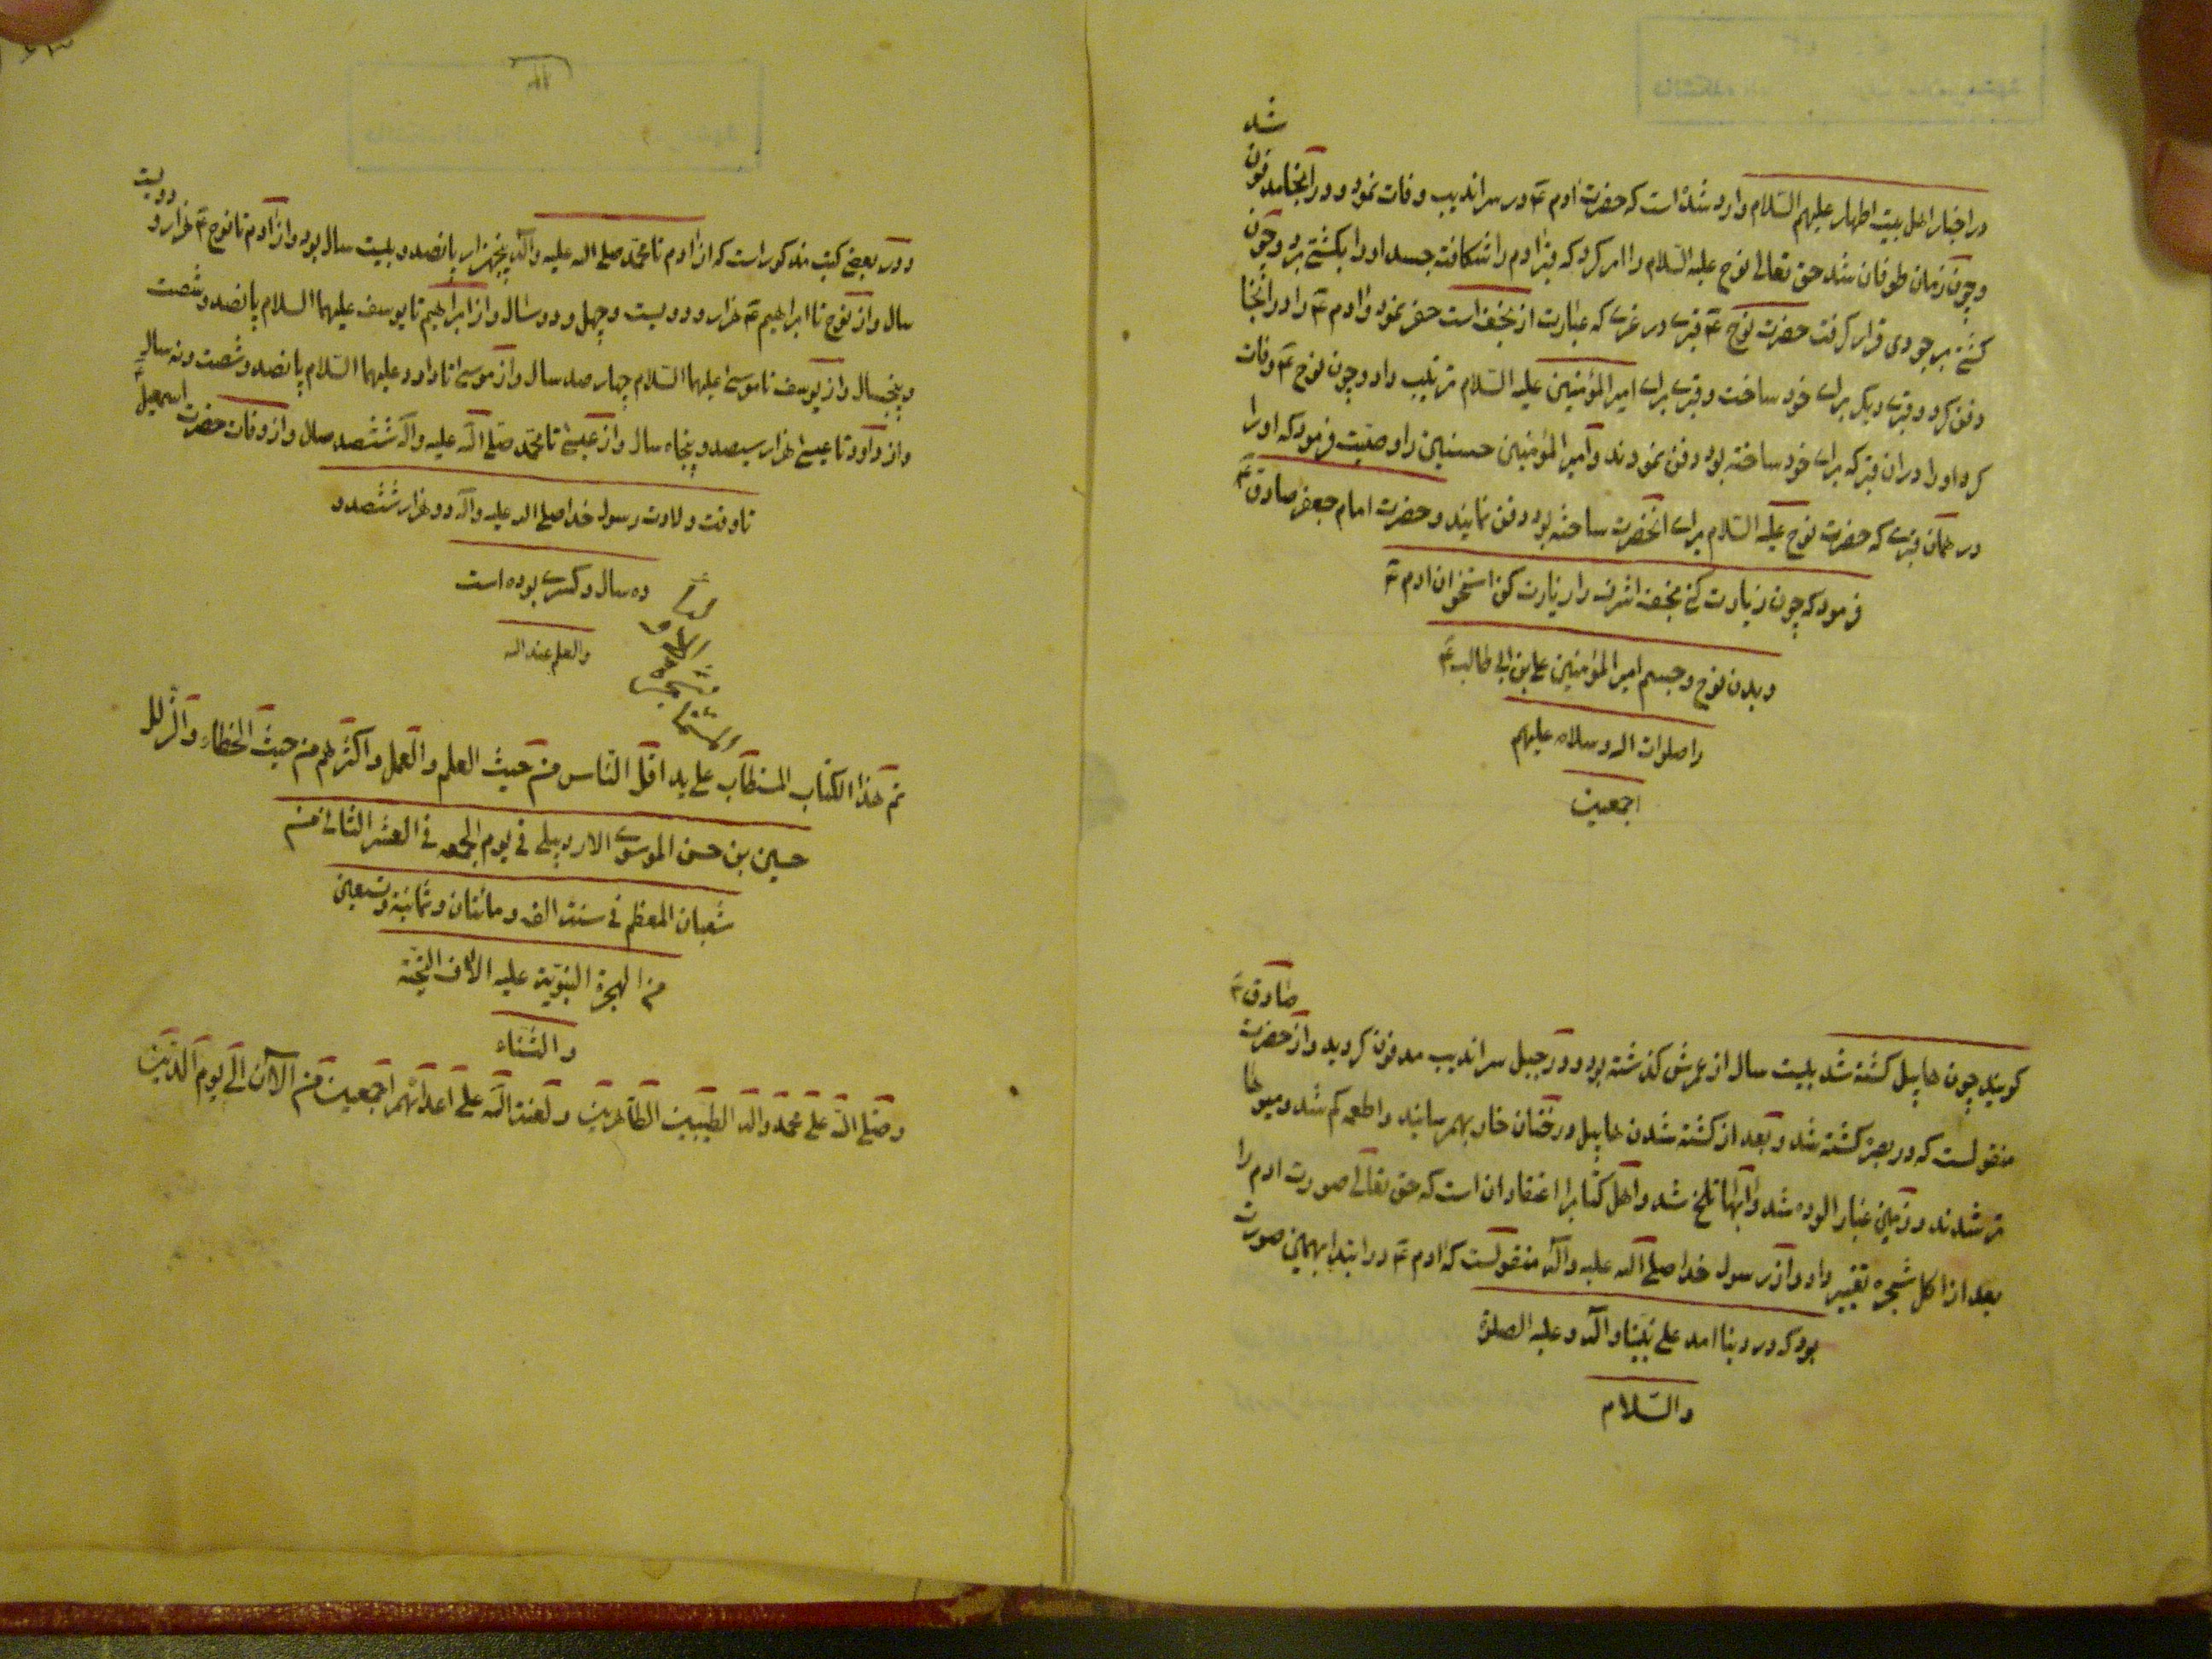 در اخبار اهل بیت اطهار علیهم السّلام وارد شده است که حضرت آدم ع در سراندیب وفات نمود و در آنجا مدفون شد
و چون زمان طوفان شد حق تعالی نوح علیه السّلام را امر کرد که قبر آدم را شکافته جسد او را بکشتی برد و چون
کشتی بر جودی قرار گرفت حضرت نوح ع قبری در غری که عبارت از نجف است حفر نمود و آدم ع را در آنجا
دفن کرد و قبری دیگر برای خود ساخت و قبری برای امیر المؤمنین علیه السّلام ترتیب داد و چون نوح ع وفات
کرد او را در آن قبر که برای خود ساخته بود دفن نمودند و امیر المؤمنین حسنین را وصیّت فرمود که او را
در همان قبری که حضرت نوح علیه السّلام برای آنحضرت ساخته بود دفن نمایند و حضرت امام جعفر صادق ع
فرمود که چون زیارت کنی نجف اشرف را زیارت کن استخوان آدم ع
و بدن نوح و جسم امیر المؤمنین علی بن ابی طالب ع
را صلوات اله و سلامه علیهم
اجمعین
گویند چون هابیل کشته شد بیست سال از عمرش گذشته بود و در جبل سراندیب مدفون گردید و از حضرت صادق ع
منقولست که در بصره کشته شد و بعد از کشته شدن هابیل درختان خار بهمرسانید و اطعمه کم شد و میوها
ترشدند و زمین غبار آلوده شد و آبها تلخ شد و اهل کتابرا اعتقاد آن است که حق تعالی صورت آدم را
بعد از اکل شجره تغییر داد و از رسول خدا صلی الله علیه و آله منقولست که آدم ع در ابتدا بهمین صورت
بود که در دنیا آمد علی نبیّنا و آله و علیه الصلوة
والسّلام
و در بعضی کتب مذکور است که از آدم تا محمّد صلی اله علیه و آله پنجهزار پانصد و بیست سال بود و از آدم تا نوح ع هزار و دویست
سال و از نوح تا ابراهیم ع هزار و دویست و چهل و دو سال و از ابراهیم تا یوسف علیهما السلام پانصد و شصت
و پنجسال و از یوسف تا موسی علیهما السّلام چهار صد سال و از موسی تا داود علیهما السّلام پانصد و شصت و نه سال
و از داود تا عیسی هزار سیصد و پنجاه سال و از عیسی تا محمّد صلی الله علیه و آله ششصد سال و از وفات حضرت اسمعیل ع
تا وقت ولادت رسول خدا صلی اله علیه و آله دو هزار ششصد و
ده سال و کسری بوده است
والعلم عند اله
تم هذا الکتاب المستطاب علی ید اقلّ النّاس من حیث العلم والعمل واکثرهم من حیث الخطاء والزّلل
حسین بن حسن الموسوی الاردبیلی فی یوم الجمعه فی العشر الثانی من
شعبان المعظم فی سنة الف ومائتان وثمانیة وتسعین
من الهجرة النبویّة علیه الآف التحیّة
والثناء
وصلّی الله علی محمّد وآله الطیّبین الطّاهرین ولعنة الله علی اعدائهم اجمعین من الآن الی یوم الدّین